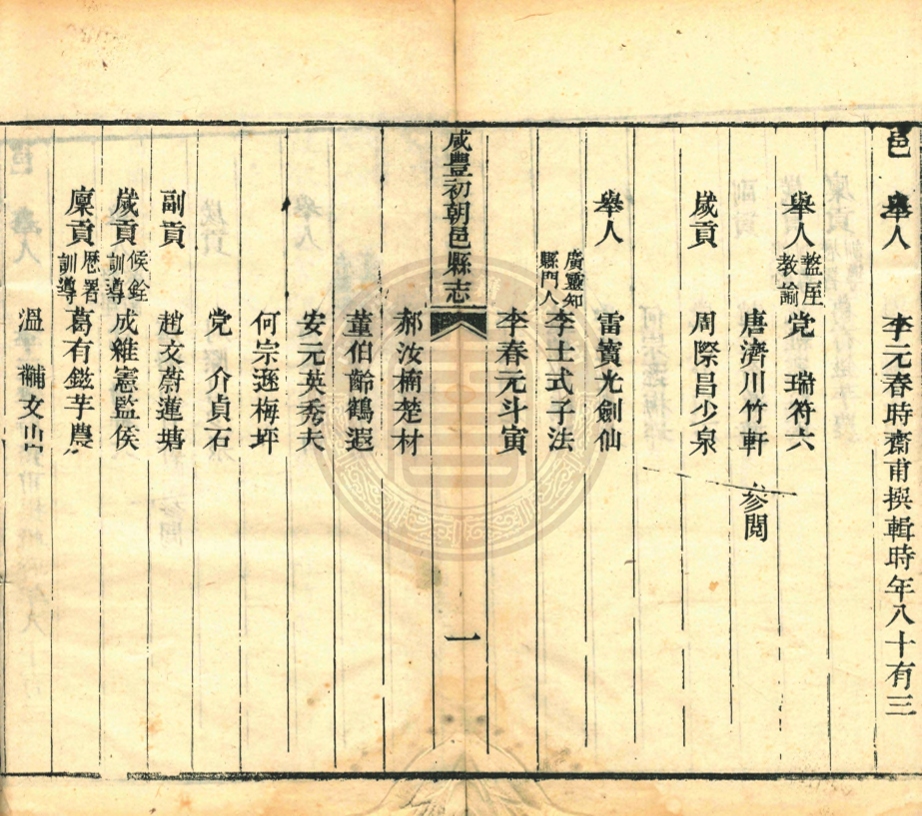 邑 舉人 李元春時齋甫撰輯時年八十有三
舉人 盩厔教諭 党 瑞符六
唐濟川竹軒 參閱
歲貢 周際昌少泉
舉人 雷寶光劍仙
廣靈知縣門人 李士式子法
李春元斗寅
咸豐初朝邑縣志 一
郝汝楠楚材
董伯齡鶴遐
安元英秀夫
何宗遜梅坪
党 介貞石
副貢 趙文蔚蓮塘
歲貢 候銓訓導 成維憲監侯
廩貢 歷署訓導 葛有鎡芋農
溫 黼文山